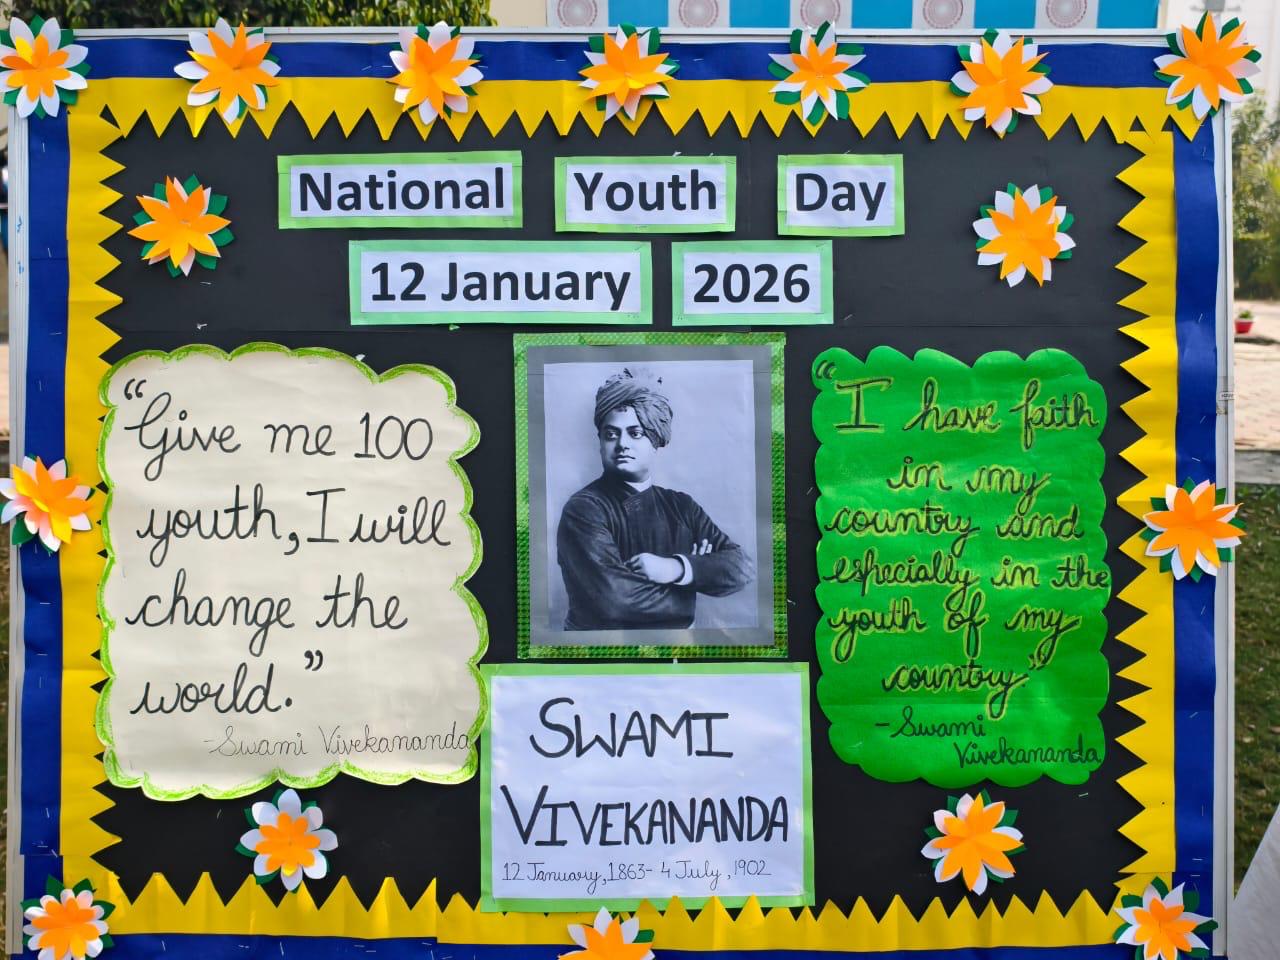 National Youth Day
12 January 2026
"Give me 100
youth, I will
change the
world."
-Swami Vivekananda
"I have faith
in my
country and
especially in the
youth of my
country."
-Swami
Vivekananda
SWAMI
VIVEKANANDA
12 January, 1863- 4 July, 1902